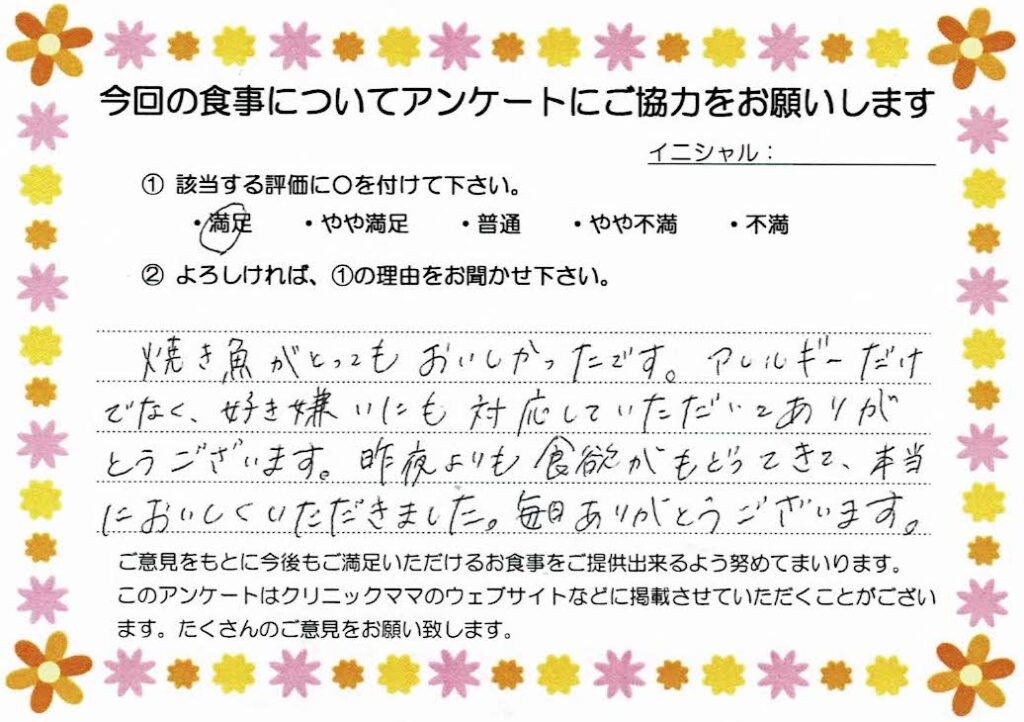 今回の食事についてアンケートにご協力をお願いします
イニシャル：
① 該当する評価に〇を付けて下さい。
・満足 ・やや満足 ・普通 ・やや不満 ・不満
② よろしければ、①の理由をお聞かせ下さい。
焼き魚がとってもおいしかったです。アレルギーだけ
でなく、好き嫌いにも対応していただいてありが
とうございます。昨夜よりも食欲がもどってきて、本当
においしくいただきました。毎日ありがとうございます。
ご意見をもとに今後もご満足いただけるお食事をご提供出来るよう努めてまいります。
このアンケートはクリニックママのウェブサイトなどに掲載させていただくことがござい
ます。たくさんのご意見をお願い致します。